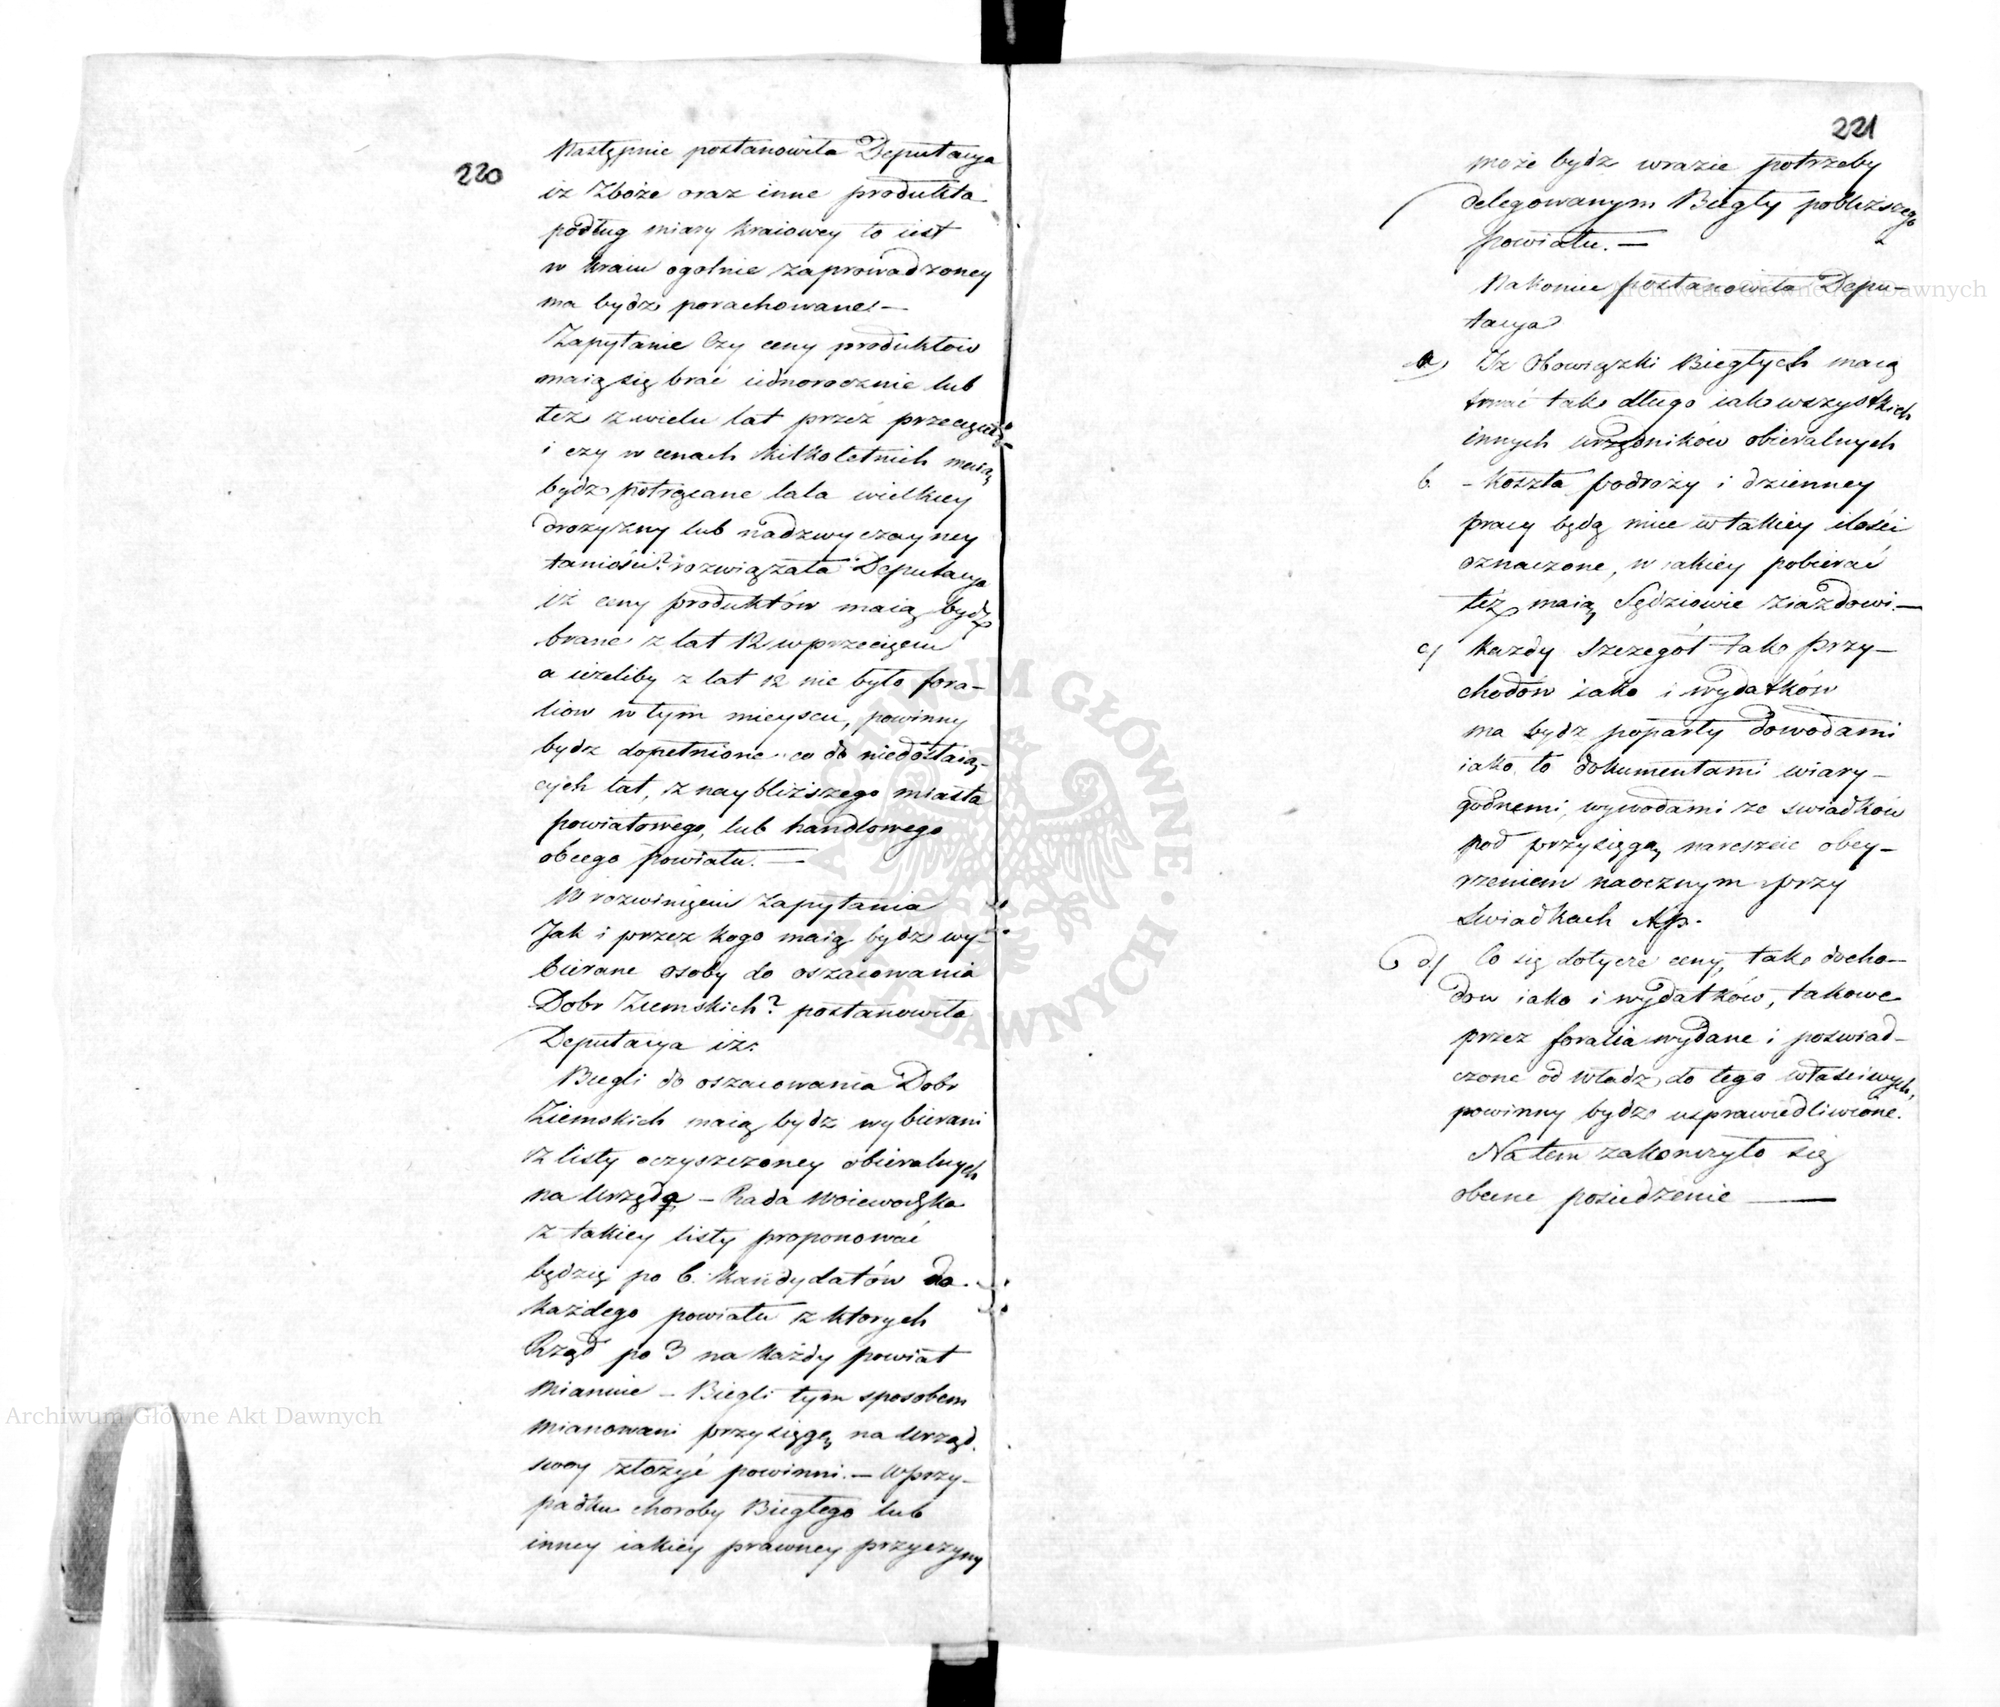 220
Następnie postanowiła Deputacya
iż Zboże oraz inne produkta
podług miary kraiowey to iest
w kraiu ogolnie zaprowadzoney
ma bydz porachowane. —
Zapytanie Czy ceny produktow
maią się brać iednorocznie lub
też z wielu lat przez przecięcie
i czy w cenach kilkoletnich maią
bydz potrącane lata wielkiey
drożyzny lub nadzwyczayney
taniości? rozwiązała Deputacya
iż ceny produktów maią bydz
brane z lat 12 w przecięciu
a ieżeliby z lat 12 nie było fora-
liow w tym mieyscu, powinny
bydz dopełnione co do niedostaią-
cych lat, z naybliższego miasta
powiatowego, lub handlowego
obcego powiatu. —
W rozwinięciu Zapytania
Jak i przez kogo maią bydz wy-
bierane osoby do oszacowania
Dobr Ziemskich? postanowiła
Deputacya iż:
Biegli do oszacowania Dobr
Ziemskich maią bydz wybierani
z listy oczyszczoney obieralnych
na Urzęda — Rada Woiewodzka
z takiey listy proponować
będzie po 6. kandydatów do
każdego powiatu z ktorych
Rząd po 3 na każdy powiat
mianuie — Biegli tym sposobem
mianowani przysięgę na urząd
swoy złożyć powinni. — W przy-
padku choroby Biegłego lub
inney iakiey prawney przyczyny
221
może bydz w razie potrzeby
delegowanym Biegły pobliższego
powiatu. —
Nakoniec postanowiła Depu-
tacya
a) Iż Obowiązki Biegłych maią
trwać tak długo iak wszystkich
innych urzędników obieralnych
b. - Koszta podroży i dzienney
pracy będą mieć w takiey ilości
oznaczone, w iakiey pobierać
też maią Sędziowie ziazdowi. —
c) Każdy szczegół tak przy-
chodów iako i wydatków
ma bydz poparty dowodami
iako to dokumentami wiary-
godnemi, wywodami ze swiadków
pod przysięgą, nareszcie obey-
rzeniem naocznym przy
swiadkach etp.
d) Co się dotycze ceny, tak docho-
dow iako i wydatków, takowe
przez foralia wydane i poswiad-
czone od władz do tego właściwych,
powinny bydz usprawiedliwione.
Na tem zakonczyło się
obecne posiedzenie —
Archiwum Główne Akt Dawnych
Archiwum Główne Akt Dawnych
ARCHIWUM GŁÓWNE AKT DAWNYCH